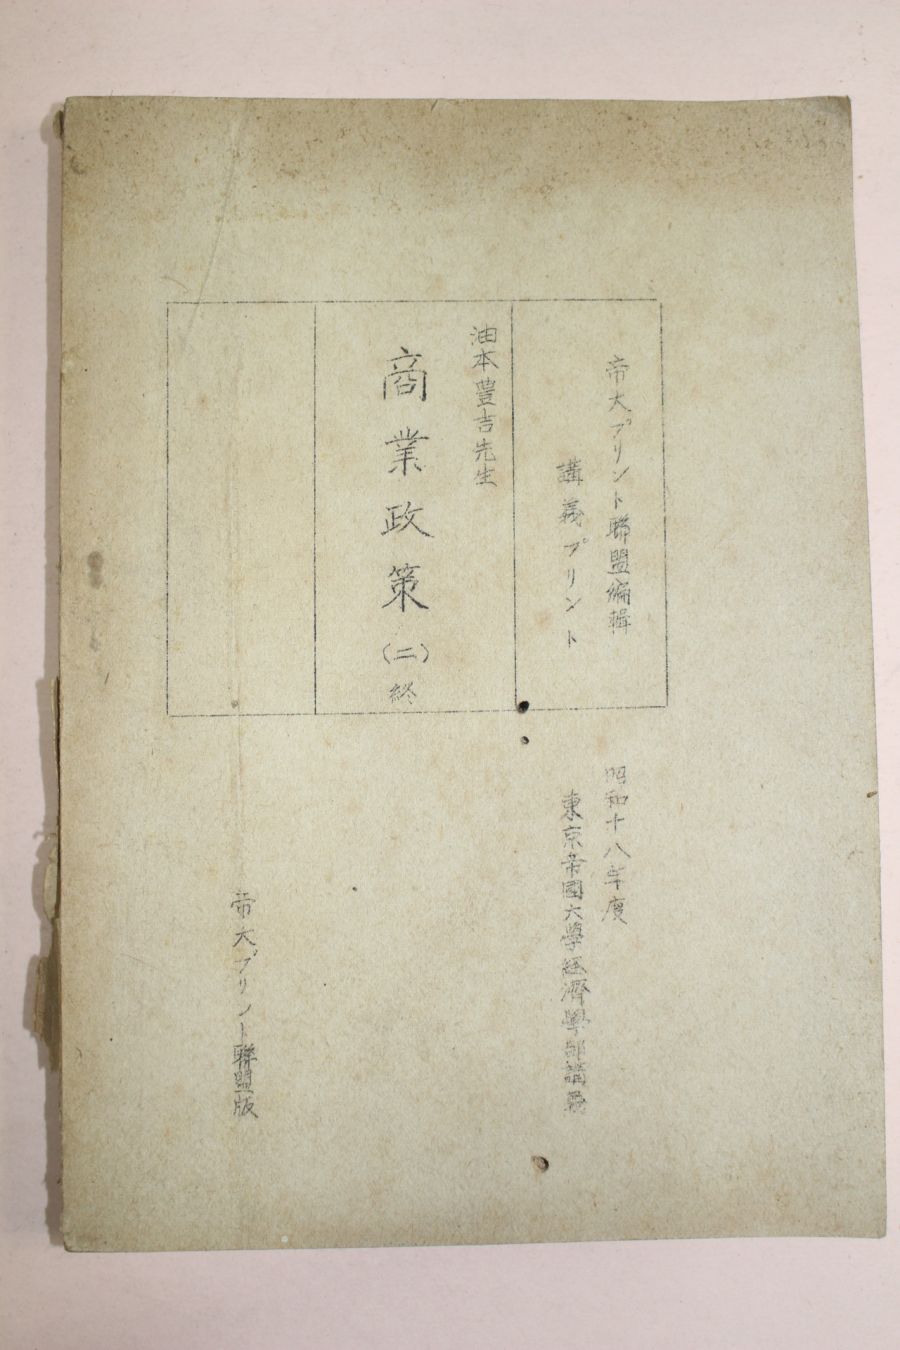 帝大プリント聯盟編輯
講義プリント
油本豊吉先生
商業政策(二)終
昭和十八年度
東京帝國大學經濟學部講義
帝大プリント聯盟版